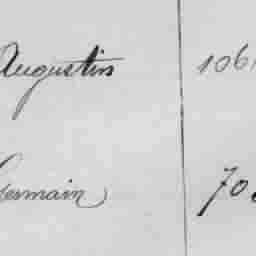 Augustin 106
Germain 70